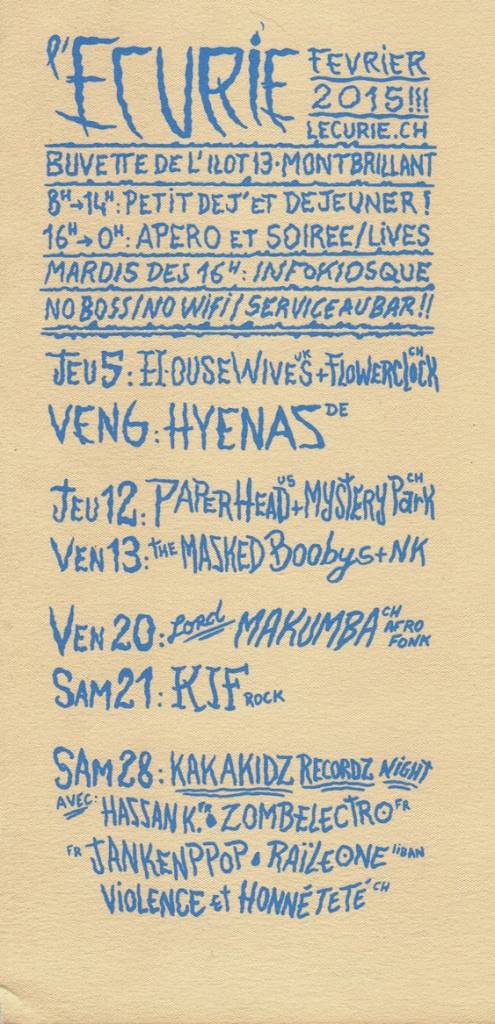 l'ECURIE
FEVRIER
2015!!!
LECURIE.CH
BUVETTE DE L'ILOT 13·MONTBRILLANT
8H→14H: PETIT DEJ' ET DEJEUNER!
16H→0H: APERO ET SOIREE/LIVES
MARDIS DES 16H: INFOKIOSQUE
NO BOSS/NO WIFI/SERVICE AU BAR!!
JEU 5: HOUSEWIVES UK + FLOWERCLOCK CH
VEN 6: HYENAS DE
JEU 12: PAPERHEAD US + MYSTERY PARK CH
VEN 13: THE MASKED BOOBYS + NK
VEN 20: LORD MAKUMBA CH AFRO FONK
SAM 21: KIF ROCK
SAM 28: KAKAKIDZ RECORDZ NIGHT
AVEC: HASSAN K. FR • ZOMBELECTRO FR
FR JANKENPPOP • RAÏLEONE LIBAN
VIOLENCE et HONNÉTETÉ CH